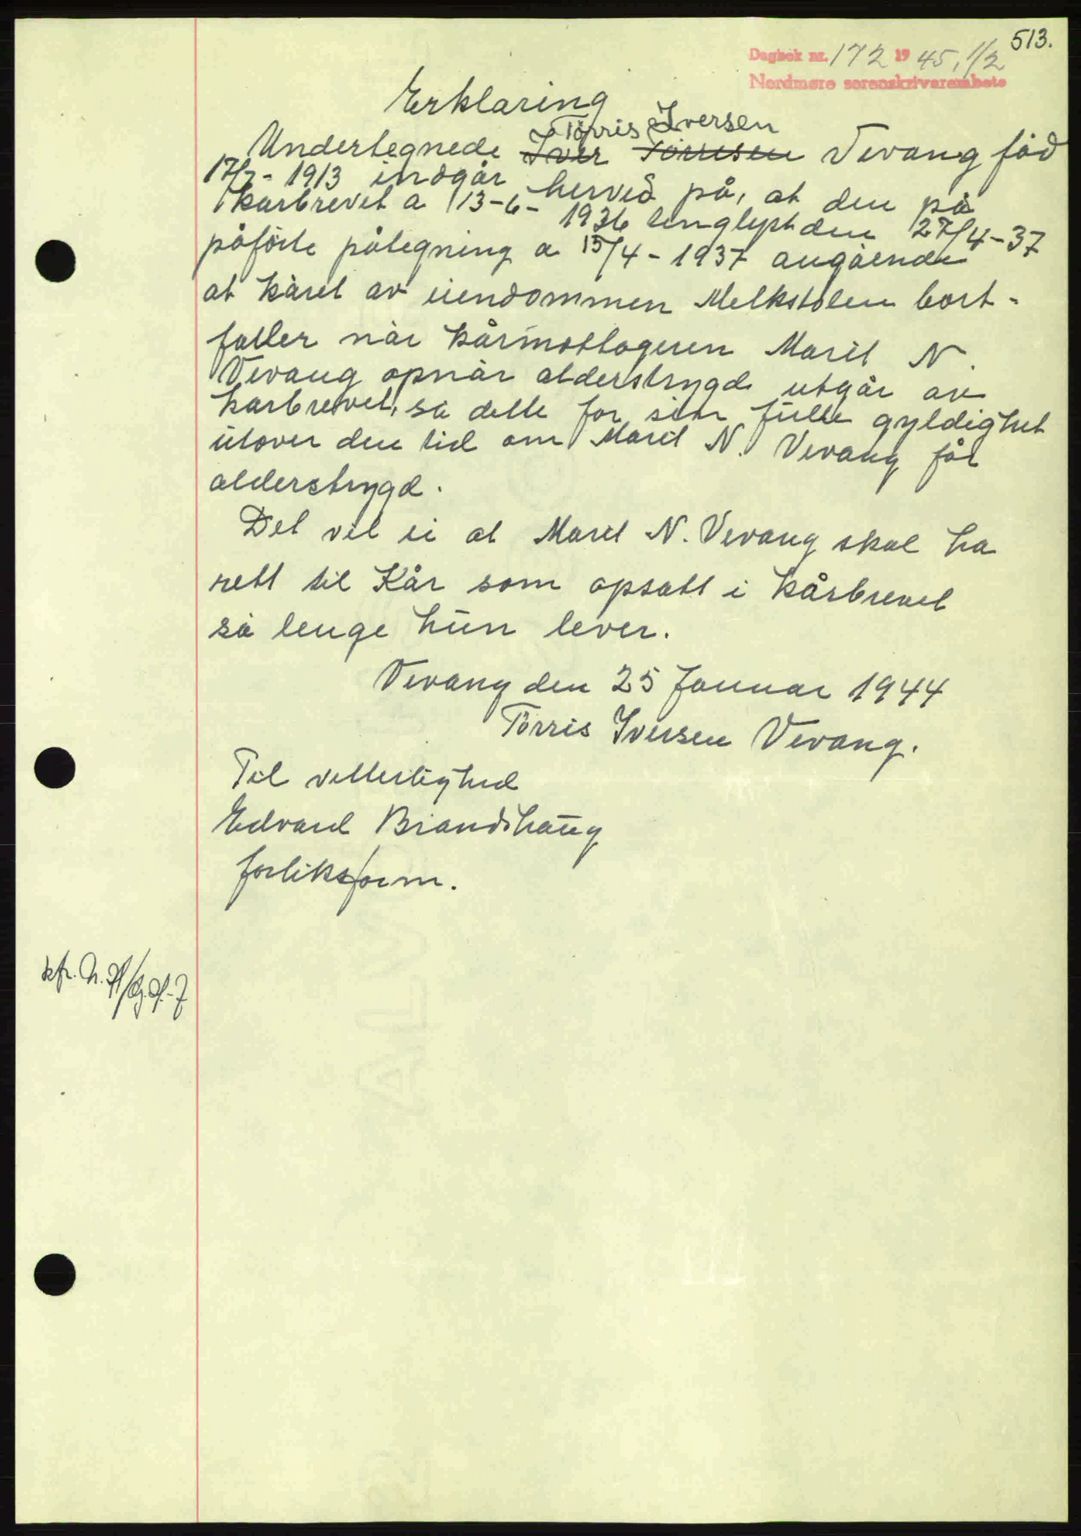 513.
Dagbok nr. 172 1945, 1/2
Nordmøre sorenskriverembete
Erklæring
Törris Iversen
Undertegnede Iver Törresen Vevang föd
17/7 - 1913 indgår herved på, at den på
kårbrevet a 13-6-1936 tinglyst den 27/4-37
påförte påtegning a 15/4-1937 angående
at kåret av eiendommen Melkstolen bort-
faller når kårmottageren Marit N.
Vevang opnår alderstrygd utgår av
kårbrevet, så dette får sin fulle gyldighet
utover den tid om Marit N. Vevang får
alderstrygd.
Det vil si at Marit N. Vevang skal ha
rett til Kår som opsatt i kårbrevet
så lenge hun lever.
Vevang den 25 Januar 1944
Törris Iversen Vevang.
Til vitterlighed
Edvard Brandshaug
forliksform.
kfr.